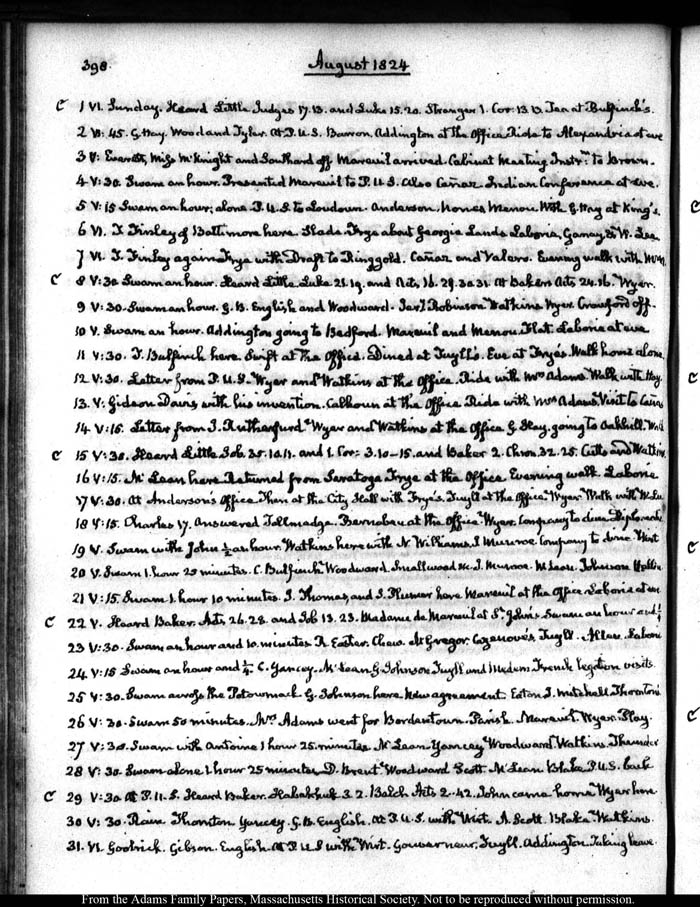 398. August 1824
C 1 VI. Sunday. Heard Little Judges 17.13. and Luke 15.20. Stranger 1. Cor: 13.13. Tea at Bulfinch's.
2 V: 45. G. Hay. Wood and Tyler. At P.U.S. Barron. Addington at the Office Ride to Alexandria at eve
3 V: Everett, Miss McKnight and Southard off Mareuil arrived. Cabinet Meeting Instrns. to Brown.
4 V: 30. Swam an hour. Presented Mareuil to P.U.S. Also Cañaz. Indian Conference at eve.
5 V: 15 Swam an hour; alone P.U.S. to Loudoun. Anderson, Menou With G. Hay at King's.
6 VI. T. Finley of Baltimore here. Slade. Frye about Georgia Lands Laborie, W. Lee
7 VI. T. Finley again Frye with Draft to Ringgold. Cañaz and Valero. Evening walk with
C 8 V:30 Swam an hour. Heard Little Luke 21.19. and Acts, 16. 29.30.31. At Baker Acts 24.16. Wyer.
9 V: 30. Swam an hour. G.B. English and Woodward. Robinson Watkins Wyer Crawford off.
10 V. Swam an hour. Addington going to Bedford. Mareuil and Menou Laborie at eve
11 V:30. T. Bulfinch here Swift at the Office. Dined at Tuyll's. Eve at Frye's. Walk home alone.
12 V:30. Letter from P.U.S. Wyer and Watkins at the Office. Ride with Mrs Adams Walk with Hay.
13. V: Gideon Davis with his invention. Calhoun at the Office Ride with Mrs Adams. Visit to Cañaz
14 V:15. Letter from J. Rutherfurd Wyer and Watkins at the Office G. Hay, going to Oakhill.
C 15 V:30. Heard Little Job. 35.10.11. and 1. Cor: 3.10-15. and Baker 2. Chron. 32.25. Cutts and Watkins
16 V:15. McLean here Returned from Saratoga Frye at the Office Evening walk. Laborie
17 V:30. At Anderson's Office Then at the City Hall with Frye's. Tuyll at the Office Wyer Walk with
18 V:15. Charles 17. Answered Tallmadge. Bernabeu at the Office Wyer. Company to dine Diplomatic
19 V. Swam with John ½ an hour. Watkins here with N. Williams. J. Munroe. Company to dine Wirt
20 V. Swam 1. hour 20 minutes. C. Bulfinch Woodward. Smallwood J. Munroe. McLean. Johnson
21 V:15. Swam 1. hour 10 minutes. J. Thomas, and J. Plumer here Mareuil at the Office. Laborie at
C 22 V. Heard Baker. Acts, 26.28. and Job 13.23. Madame de Mareuil at St. John's. Swam an hour and
23 V:30. Swam an hour and 10. minutes R. Easter. Chew. McGregor. Cazenove's Tuyll. Allen. Laborie
24 V:15 Swam an hour and ¼ C. Yancey. McLean. G. Johnson Tuyll and French legation visits.
25 V:30. Swam across the Potowmack G. Johnson here New agreement. Eaton. J. Mitchell. Thornton
26 V: 30. Swam 50 minutes. Mrs Adams went for Bordentown. Parish. Mareuil. Wyer. Play.
27 V: 30. Swam with Antoine 1 hour 25. minutes. McLean. Yancey Woodward. Watkins. Thunder
28 V: 30. Swam alone 1. hour 25 minutes D. Brent Woodward Scott. McLean Blake P.U.S. back
C 29 V:30 At P.U.S. Heard Baker. Habakkuk 3.2. Balch Acts 2.42. John came home Wyer here
30 V: 30. Rain Thornton Yancey. G.B. English. At P.U.S. with Wirt. A. Scott. Blake. Watkins.
31. VI. Goodrick. Gibson. English. At P.U.S with Wirt. Gouverneur, Tuyll. Addington. Taking leave.
C
C
C
C
From the Adams Family Papers, Massachusetts Historical Society. Not to be reproduced without permission.